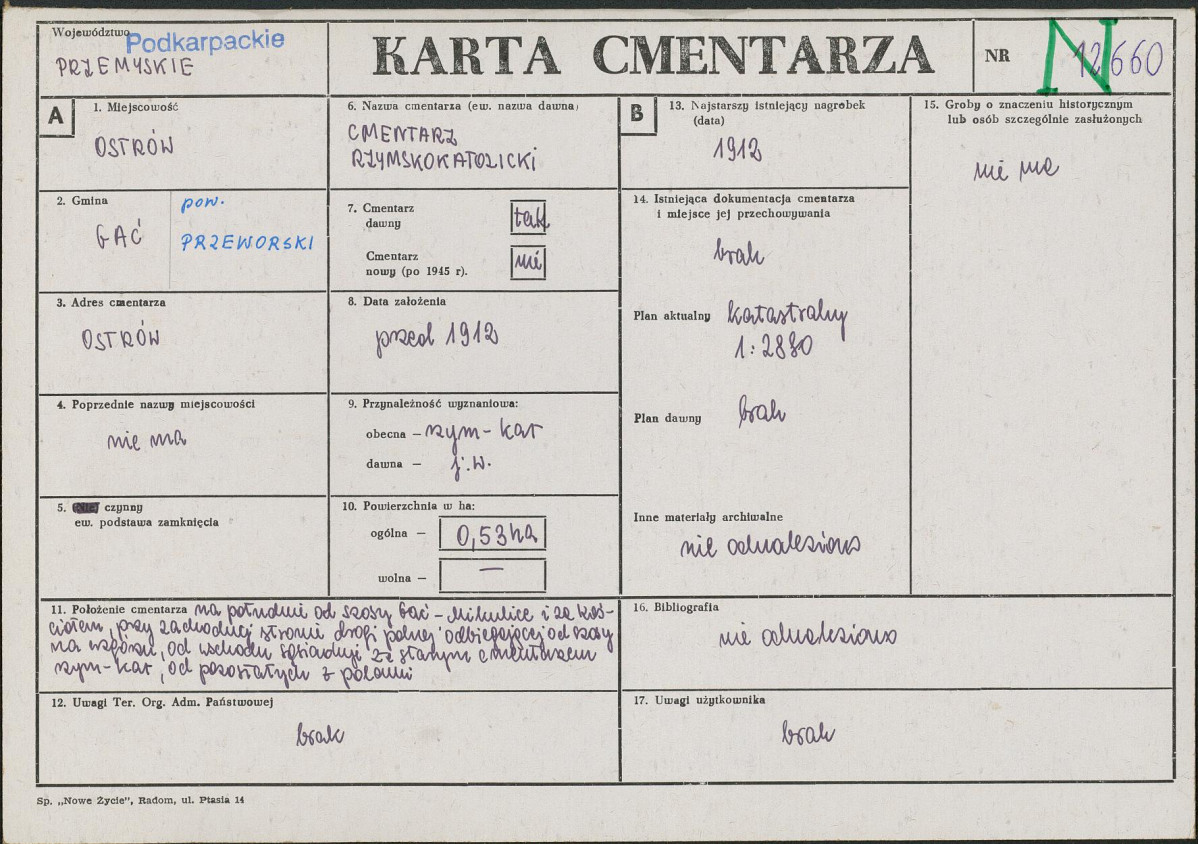 Województwo Podkarpackie
PRZEMYSKIE
KARTA CMENTARZA
NR N 12660
A
1. Miejscowość
OSTRÓW
2. Gmina
GAĆ
pow.
PRZEWORSKI
3. Adres cmentarza
OSTRÓW
4. Poprzednie nazwy miejscowości
nie ma
5. czynny
ew. podstawa zamknięcia
6. Nazwa cmentarza (ew. nazwa dawna)
CMENTARZ
RZYMSKOKATOLICKI
7. Cmentarz
dawny
tak
Cmentarz
nowy (po 1945 r).
nie
8. Data założenia
przed 1912
9. Przynależność wyznaniowa:
obecna – rzym-kat
dawna – j.w.
10. Powierzchnia w ha:
ogólna – 0,53ha
wolna – —
11. Położenie cmentarza na południe od szosy Gać – Mikulice i za koś-
ciołem, przy zachodniej stronie drogi polnej odbiegającej od szosy
na wzgórzu, od wschodu sąsiaduje ze starym cmentarzem
rzym-kat, od pozostałych z polami
12. Uwagi Ter. Org. Adm. Państwowej
brak
B
13. Najstarszy istniejący nagrobek
(data)
1912
14. Istniejąca dokumentacja cmentarza
i miejsce jej przechowywania
brak
Plan aktualny katastralny
1:2880
Plan dawny brak
Inne materiały archiwalne
nie odnaleziono
15. Groby o znaczeniu historycznym
lub osób szczególnie zasłużonych
nie ma
16. Bibliografia
nie odnaleziono
17. Uwagi użytkownika
brak
Sp. „Nowe Życie", Radom, ul. Ptasia 14